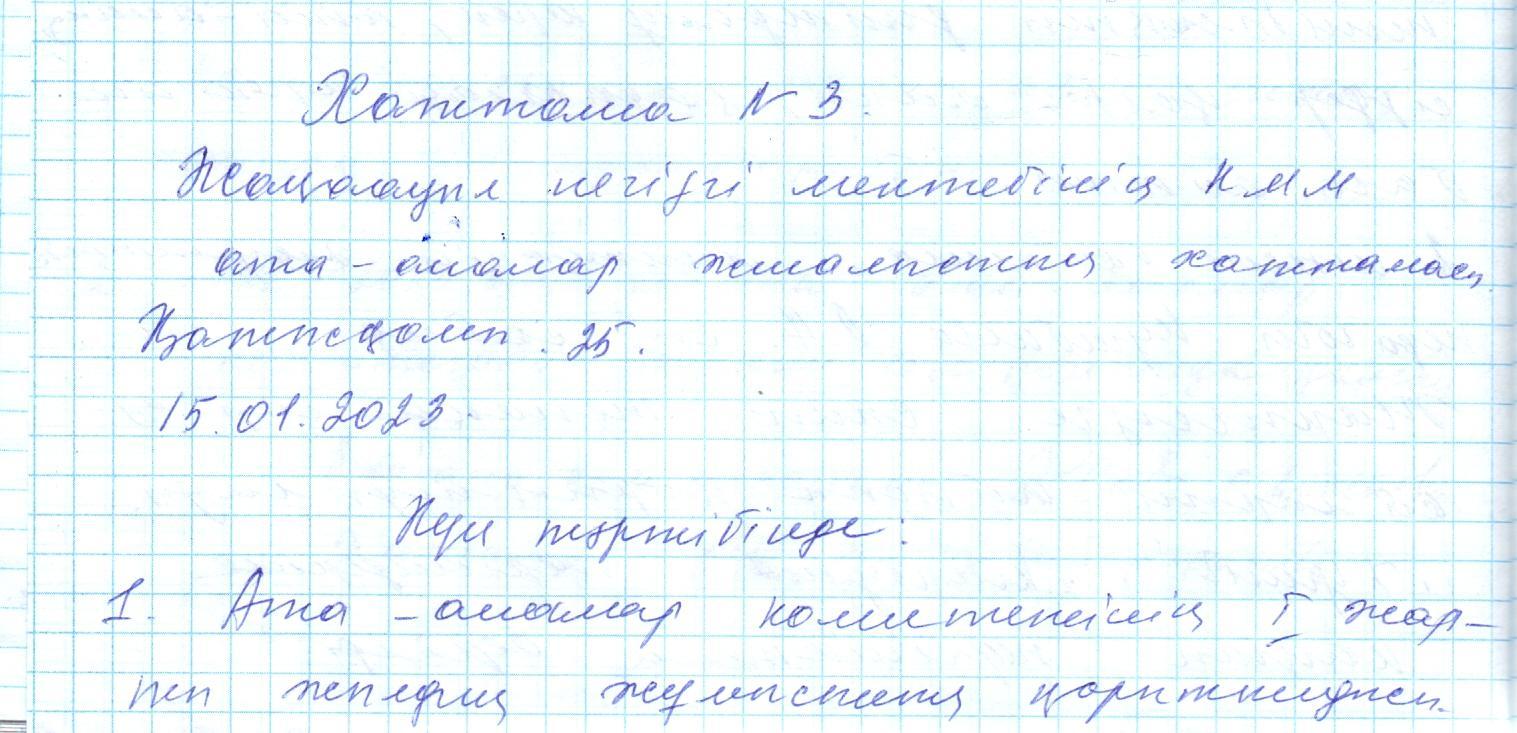 Хаттама N 3.
Жаңаауыл негізгі мектебінің КММ
ата-аналар жиналысының хаттамасы.
Қатысқаны: 25.
15.01.2023.
Күн тәртібінде:
1. Ата-аналар комитетінің I жар-
ты жылдық жұмысының қорытындысы.